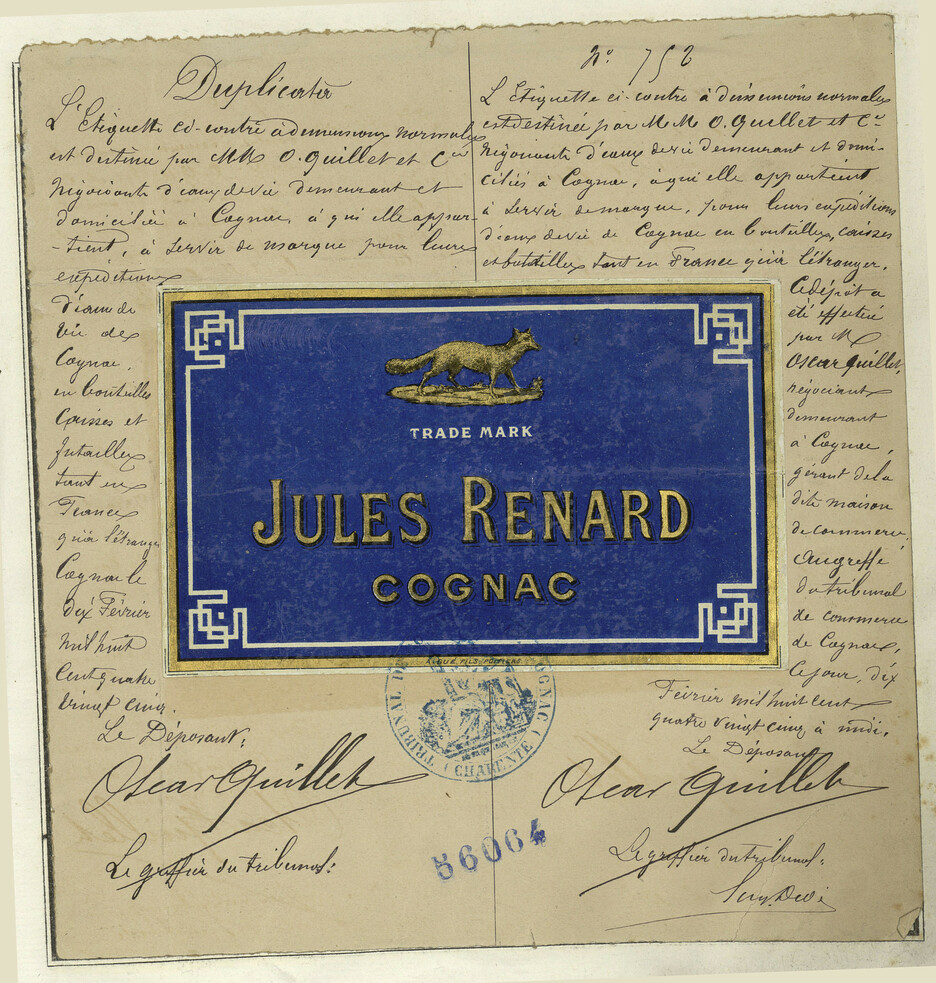 Duplicata
L'Etiquette ci-contre à dimensions normales
est destinée par MM O. Quillet et Cie
Négociants d'eaux de vie demeurant et
domiciliés à Cognac, à qui elle appar-
-tient, à servir de marque pour leurs
expéditions
d'eaux de
vie de
Cognac,
en bouteilles
Caisses et
futailles
tant en
France
qu'à l'étranger
Cognac le
dix Février
mil huit
cent quatre
vingt cinq.
Le Déposant,
Oscar Quillet
Le greffier du tribunal:
No 752
L'Etiquette ci-contre à dimensions normales
est destinée par MM O. Quillet et Cie
Négociants d'eaux de vie demeurant et domi-
ciliés à Cognac, à qui elle appartient
à servir de marque, pour leurs expéditions
d'eaux de vie de Cognac en bouteilles, caisses
et futailles tant en France qu'à l'étranger.
Ce dépôt a
été effectué
par M
Oscar Quillet,
négociant
demeurant
à Cognac,
gérant de la
dite maison
de commerce,
au greffe
du tribunal
de commerce
de Cognac,
ce jour, dix
Février mil huit cent
quatre vingt cinq à midi.
Le Déposant
Oscar Quillet
Le greffier du tribunal:
TRADE MARK
JULES RENARD
COGNAC
TRIBUNAL DE COGNAC
(CHARENTE)
56064